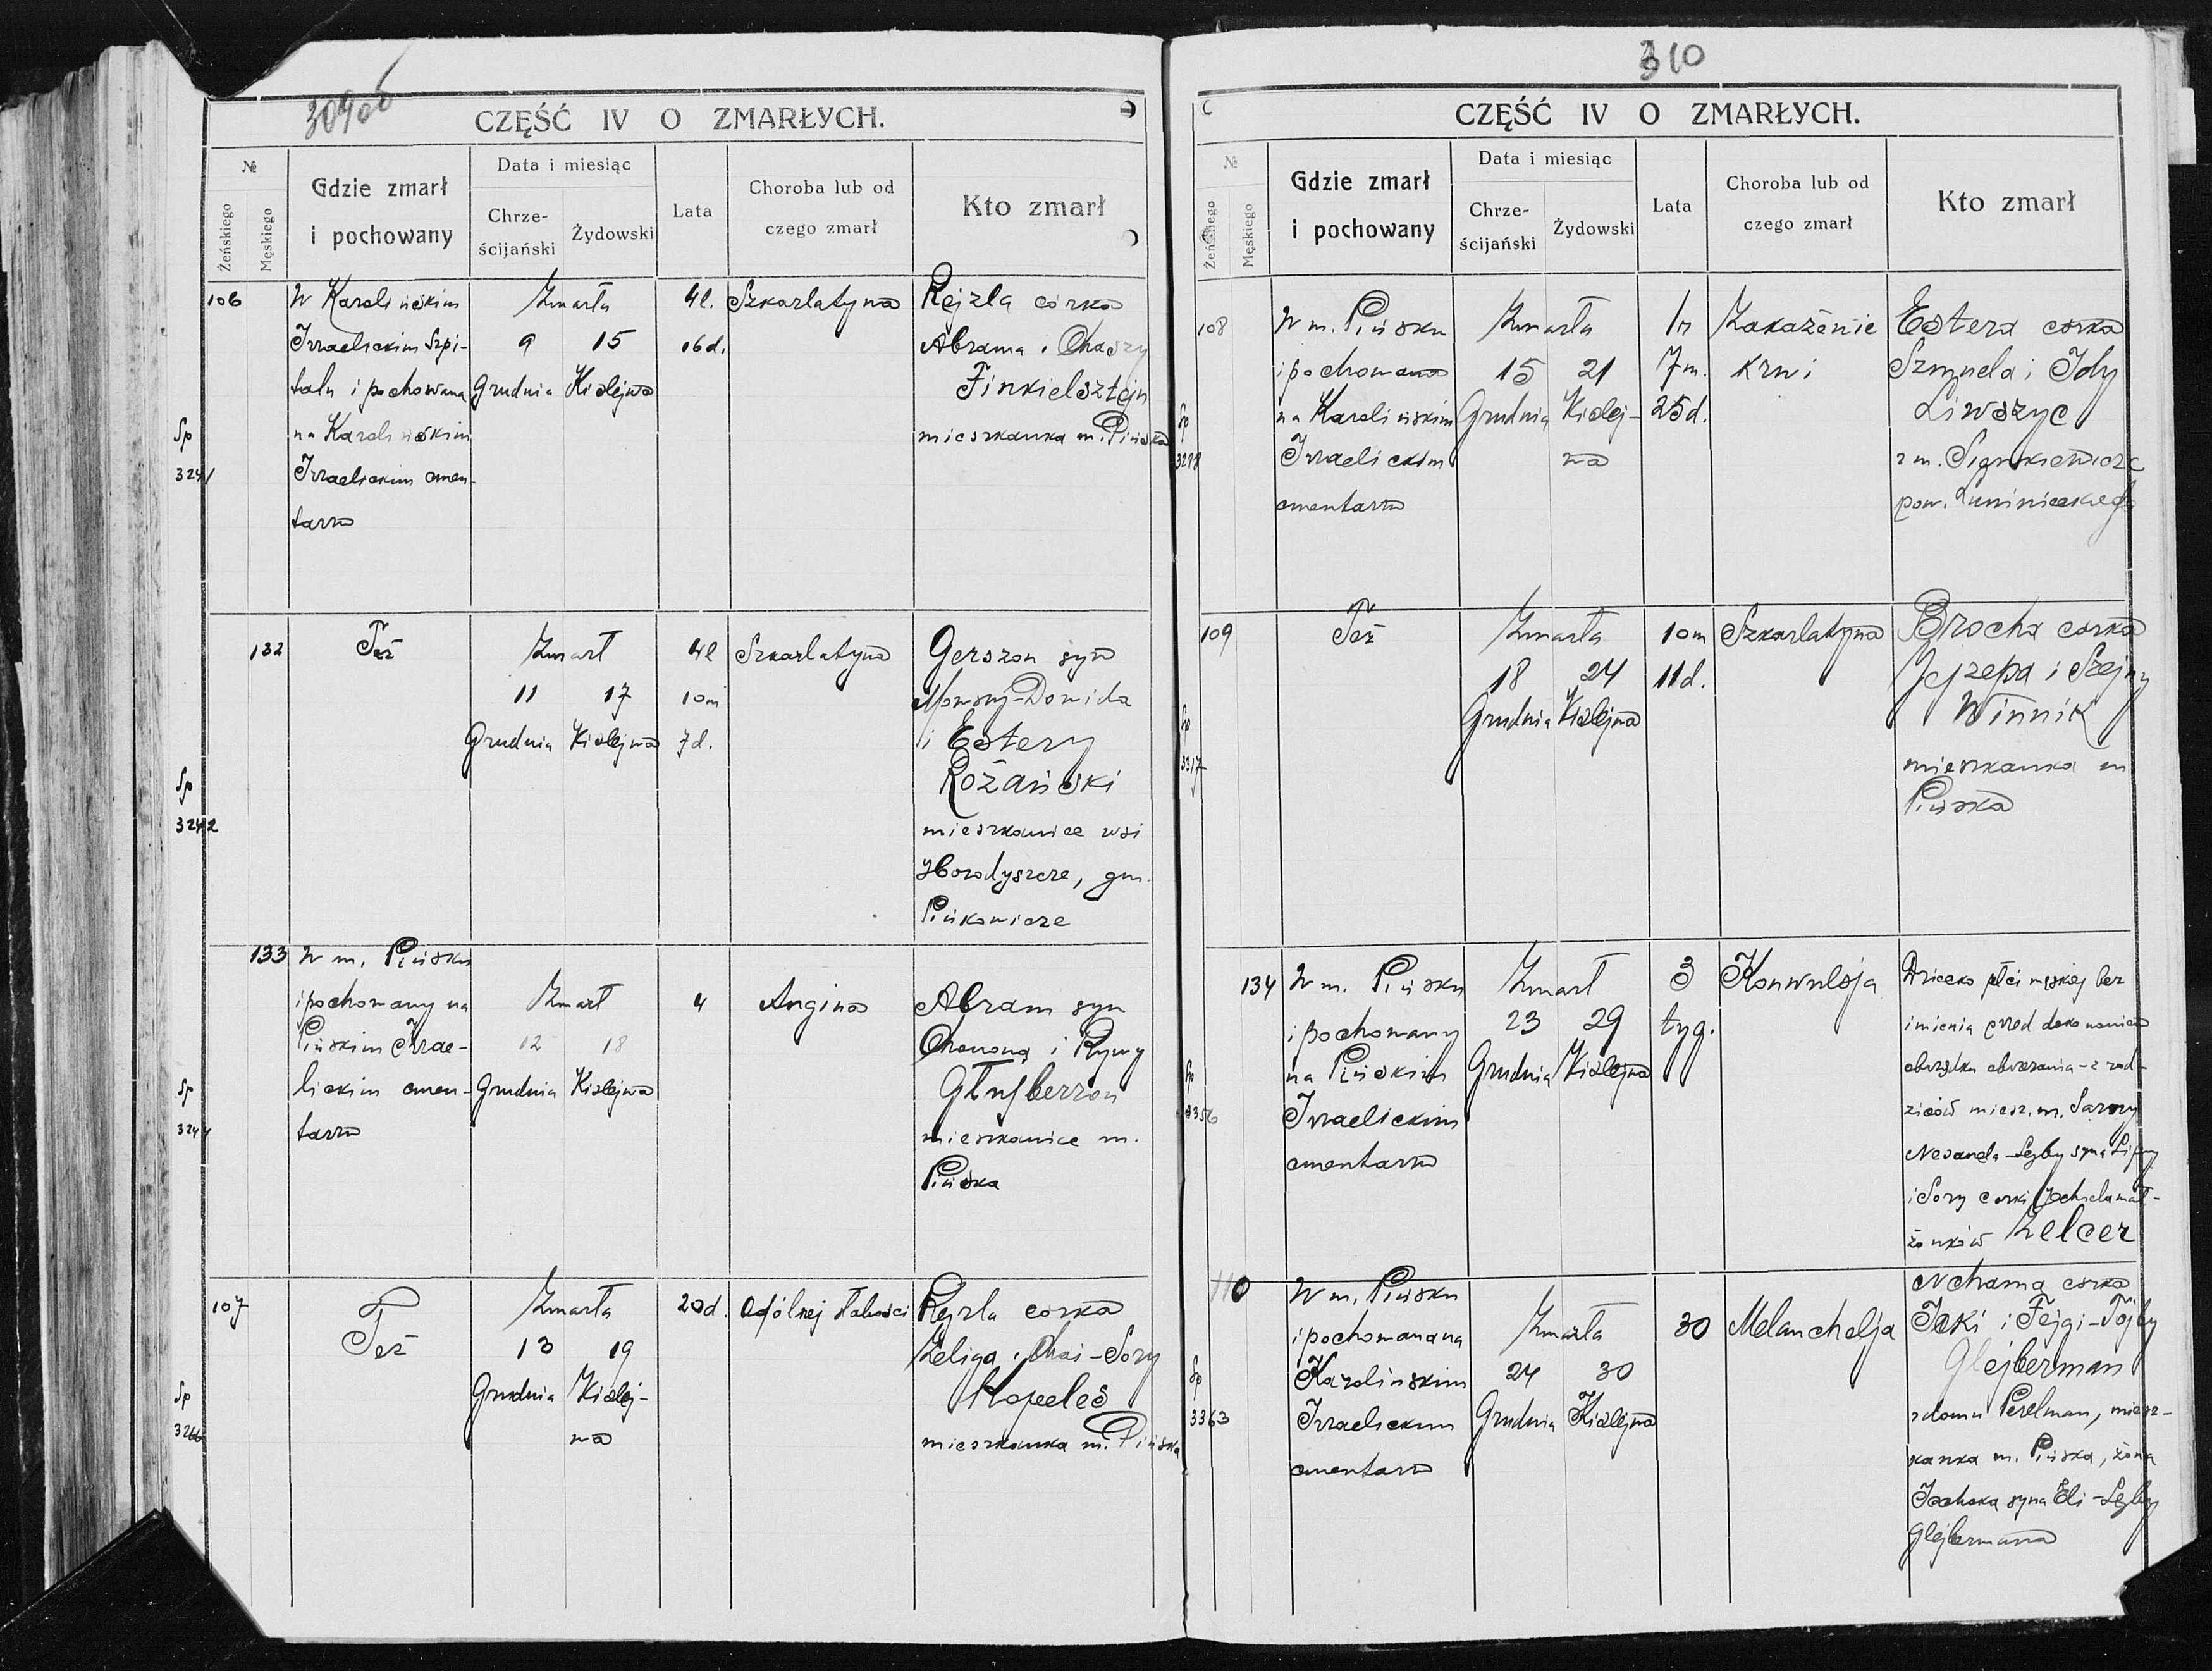 309об
CZĘŚĆ IV O ZMARŁYCH.
№
Żeńskiego
Męskiego
Gdzie zmarł
i pochowany
Data i miesiąc
Chrze-
ścijański
Żydowski
Lata
Choroba lub od
czego zmarł
Kto zmarł
106
W Karolińskim
Izraelickim Szpi-
talu i pochowana
na Karolińskim
Izraelickim cmen-
tarzu
Zmarła
9 15
Grudnia Kislejwa
4l.
16d.
Szkarlatyna
Rejzla córka
Abrama i Chaszy
Finkielsztejn
mieszkanka m. Pińska
Sp
3241
132
Też
Zmarł
11 17
Grudnia Kislejwa
4l
10m
7d.
Szkarlatyna
Gerszon syn
Mowszy-Dowida
i Estery
Rożański
mieszkaniec wsi
Horodyszcze, gm.
Pińkowicze
Sp
3242
133
W m. Pińsku
i pochowany na
Pińskim Izrae-
lickim cmen-
tarzu
Zmarł
12 18
Grudnia Kislejwa
4
Angina
Abram syn
Chonona i Rywy
Głuzberzon
mieszkaniec m.
Pińska
Sp
3244
107
Też
Zmarła
13 19
Grudnia Kislej-
wa
20d.
Ogólnej słabości
Rejzla corka
Zeliga i Chai-Sory
Kopeleś
mieszkanka m. Pińska
Sp
3266
310
CZĘŚĆ IV O ZMARŁYCH.
№
Żeńskiego
Męskiego
Gdzie zmarł
i pochowany
Data i miesiąc
Chrze-
ścijański
Żydowski
Lata
Choroba lub od
czego zmarł
Kto zmarł
108
W m. Pińsku
i pochowana
na Karolińskim
Izraelickim
cmentarzu
Zmarła
15 21
Grudnia Kislej-
wa
1r
7m.
25d.
Zakażenie
krwi
Estera corka
Szmuela i Idy
Liwszyc
z m. Sienkiewicze
pow. Łuninieckiego
Sp
109
Też
Zmarła
18 24
Grudnia Kislejwa
10m
11d.
Szkarlatyna
Brocha corka
Jejzepa i Szejny
Winnik
mieszkanka m
Pińska
Sp
3317
134
W m. Pińsku
i pochowany
na Pińskim
Izraelickim
cmentarzu
Zmarł
23 29
Grudnia Kislejwa
3
tyg.
Konwulsja
Dziecko płci męskiej bez
imienia przed dokonaniem
obrządku obrzezania - z rod-
ziców miesz. m. Sarny
Nesanela-Lejby syna Lipy
i Sory corki Jechiela mał-
żonków Zelcer
Sp
3356
110
W m. Pińsku
i pochowana na
Karolińskim
Izraelickim
cmentarzu
Zmarła
24 30
Grudnia Kislejwa
30
Melancholja
Nchama corka
Icki i Fejgi-Tojby
Glejberman
z domu Perelman, miesz-
kanka m. Pińska, żona
Icchoka syna Eli-Lejby
Glejbermana
Sp
3363